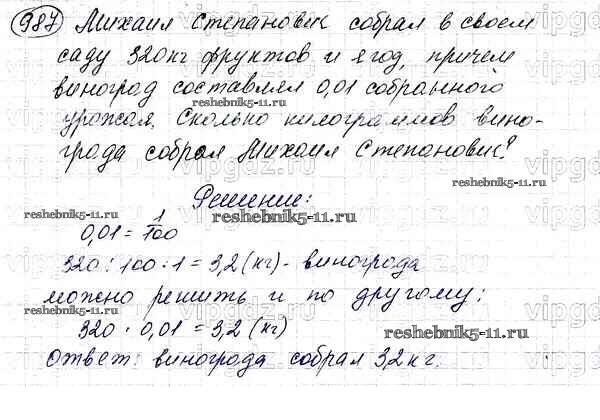 987 Михаил Степанович собрал в своем
саду 320 кг фруктов и ягод, причем
виноград составлял 0,01 собранного
reshebnik5-11.ru
урожая. Сколько килограммов вино-
града собрал Михаил Степанович?
reshebnik5-11.ru
Решение:
reshebnik5-11.ru reshebnik5-11.ru
0,01 = 1/100
320 : 100 · 1 = 3,2 (кг) - винограда
можно решить и по другому:
reshebnik5-11.ru
320 · 0,01 = 3,2 (кг)
reshebnik5-11.ru
Ответ: винограда собрал 3,2 кг.
vipgdz.ru